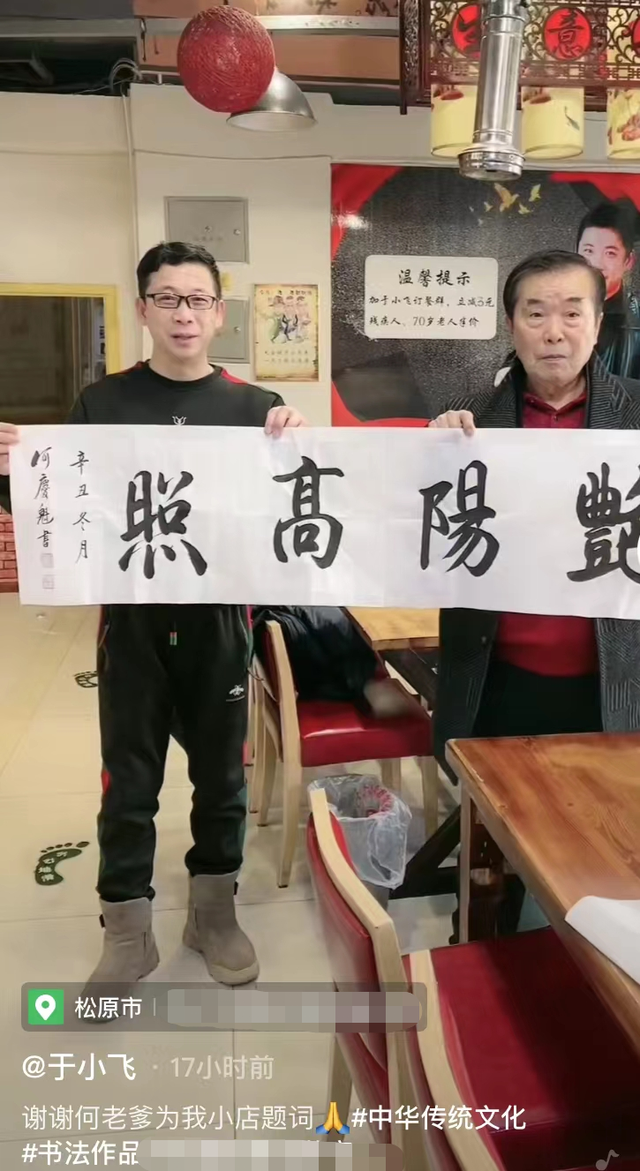 意
温馨提示
加于小飞订餐群，立减3元
残疾人、70岁老人半价
艷陽高照
辛丑冬月
何慶魁書
松原市
@于小飞 · 17小时前
谢谢何老爹为我小店题词🙏#中华传统文化
#书法作品